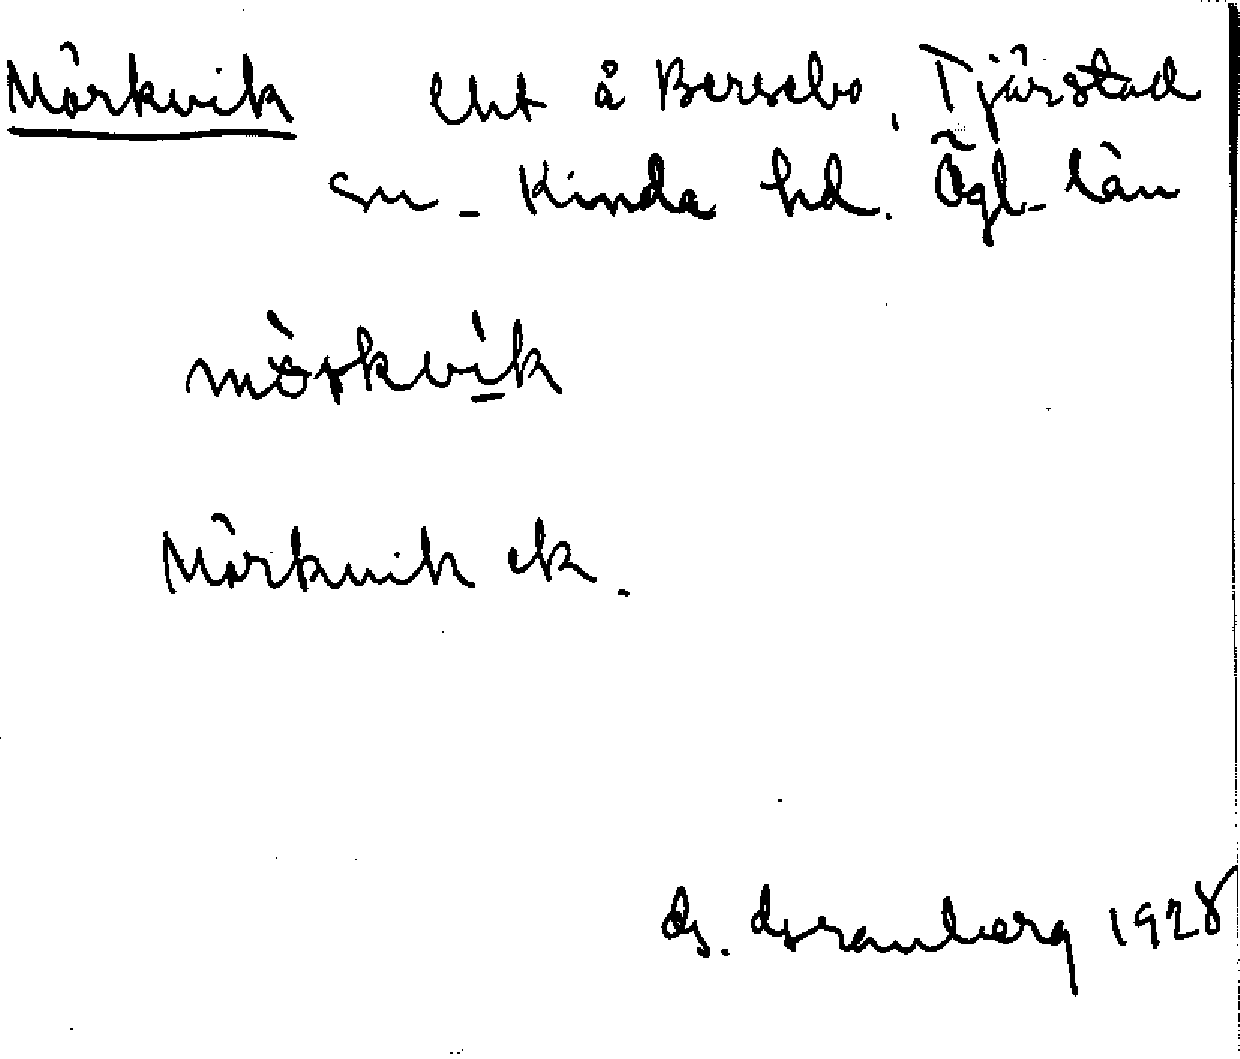 Mörkvik lht å Bersebo, Tjärstad
sn. Kinda hd. Ögl. län
mörkvik
Mörkvik ek.
G. Granberg 1928